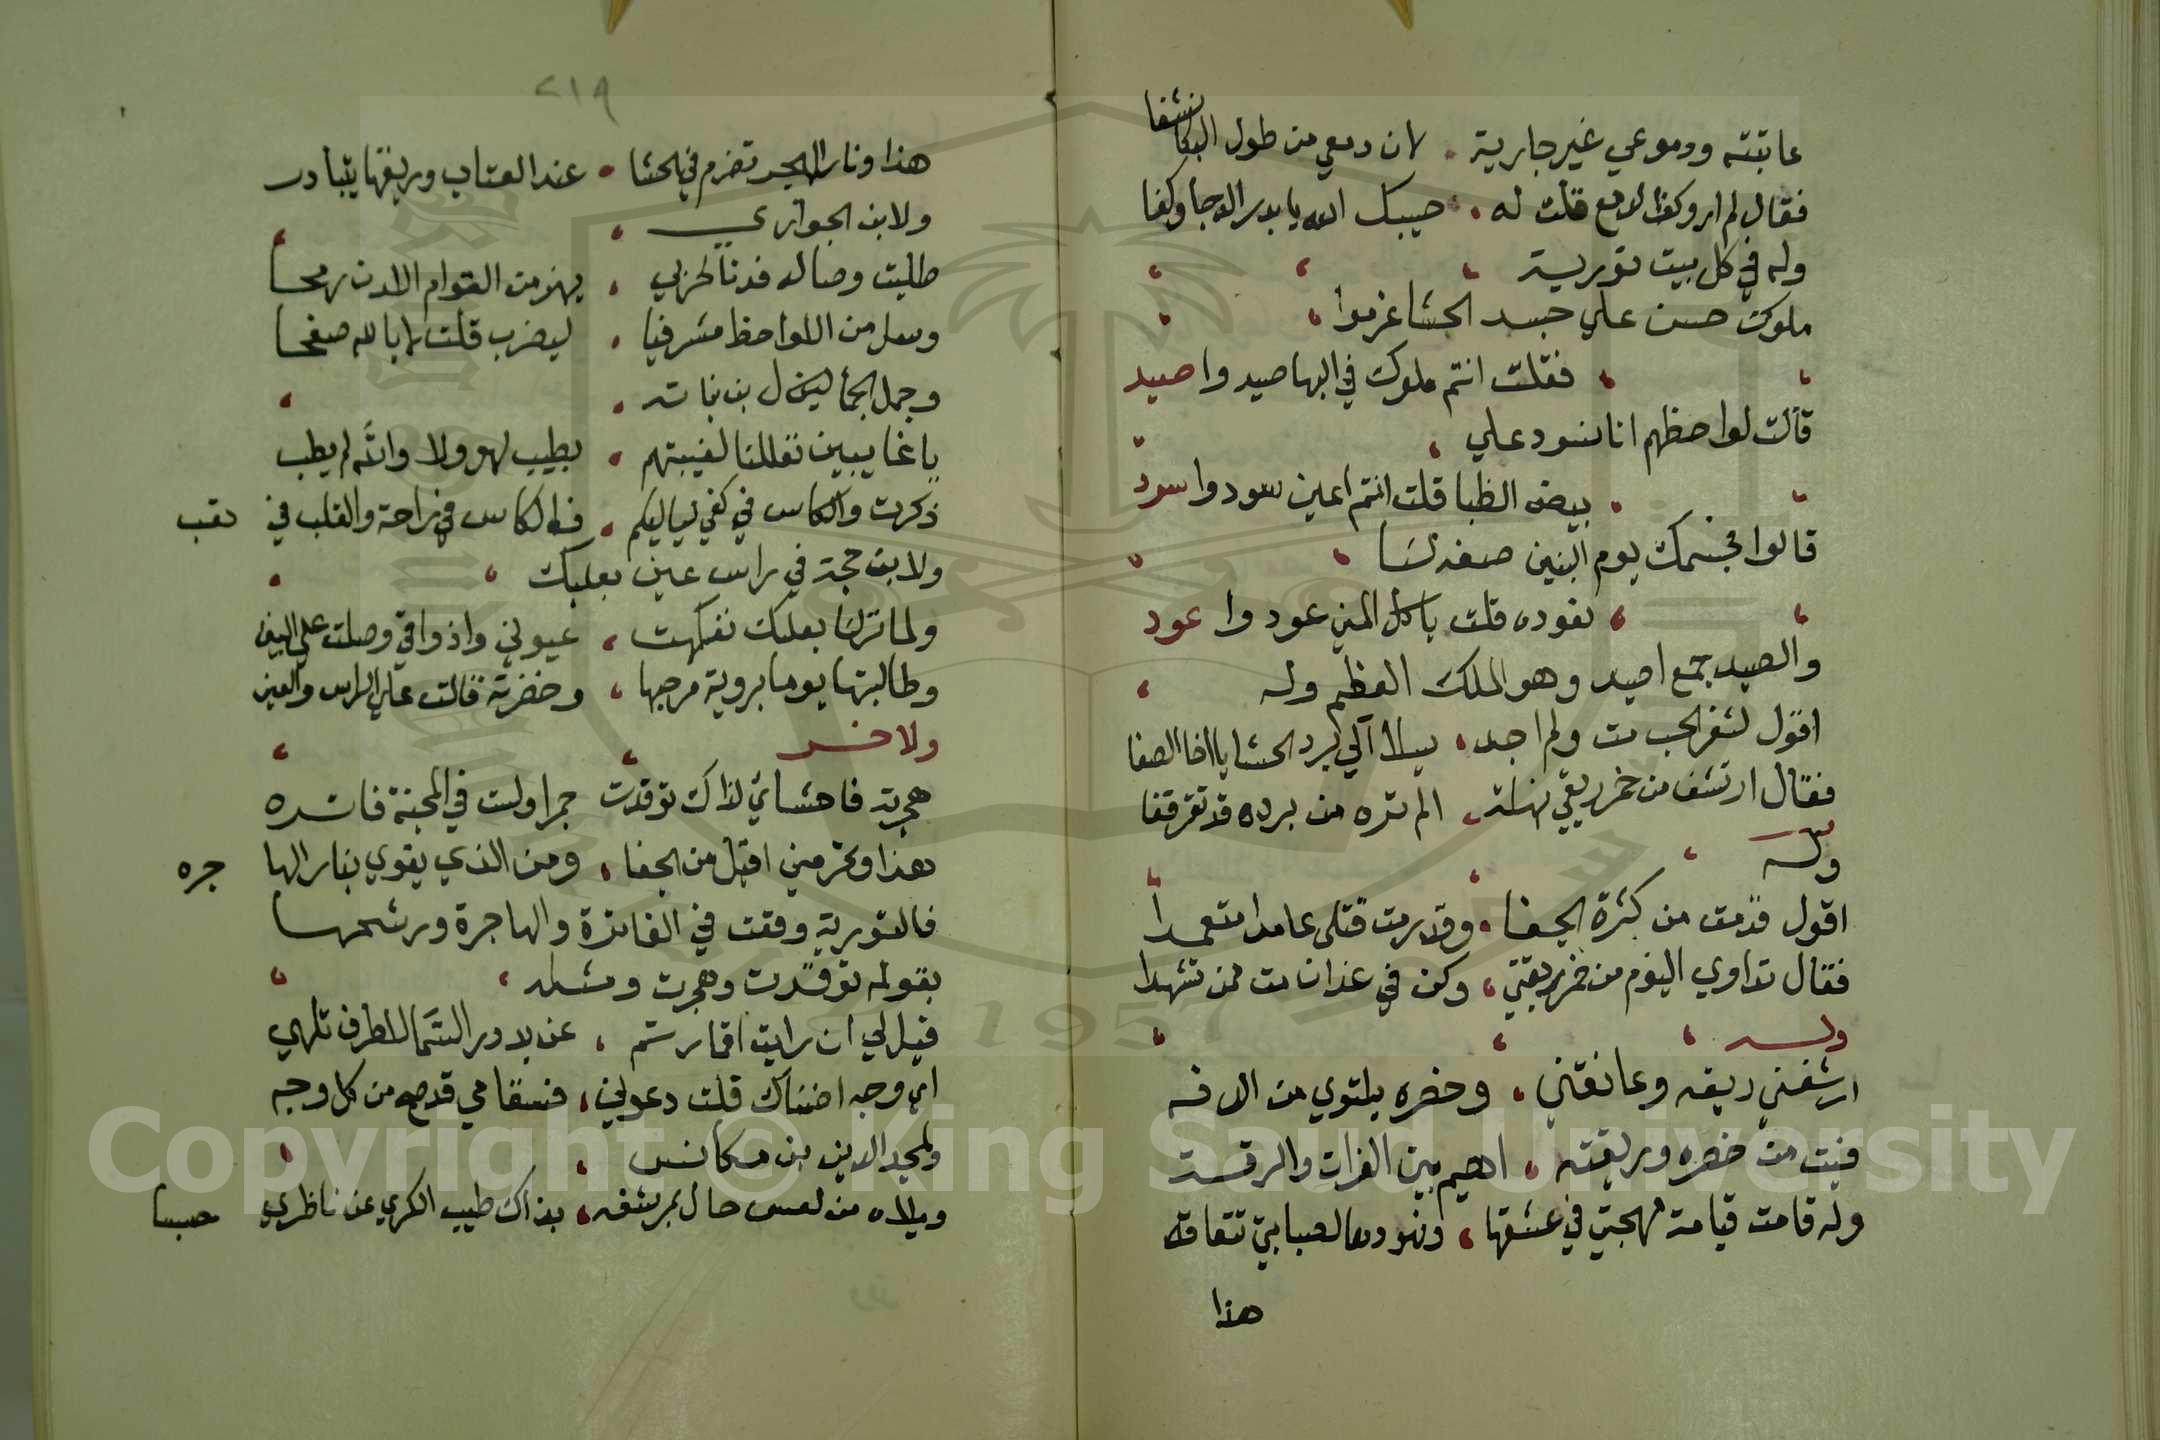 عاتبته ودموعي غير جارية . لان دمعي من طول البكا نشفا
فقال لم ار وكف الدمع قلت له . حسبك الله يا بدر الدجا وكفا
وله في كل بيت تورية
ملوك حسن علي جسد الحشا غزموا
فقلت انتم ملوك في البها صيد واصيد
قالت لواحظهم انا نسود علي
بيض الظبا قلت انتم اعين سود واسود
قالوا فجسمك يوم البين
نعوده قلت يا كل المني عود وا عود
والصيد جمع اصيد وهو الملك العظيم وله
اقول لثغر الحب مت ولم اجد . سبيلا الي برد الحشا يا اخا الصفا
فقال ارتشف من خمر ريقي نهلة . الم تره من برده قد ترقرقفا
وله
اقول قد مت من كثرة الجفا . وقد رمت قتلي عامدا متعمدا
فقال تداوي اليوم من خمر ريقتي . وكن في غد ان مت ممن تشهدا
وله
ارشفني ريقه وعانقني . وخصره يلتوي من الدقه
فبت من خصره وريقته . اهيم بين الفرات والرقة
وله قامت قيامة مهجتي في عشقها . ونهودها لصبابتي تتعاقد
هذا
٢١٩
هذا ونار الهجر تضرم في الحشا . عند العتاب وريقها يتبادر
ولابن الجواري
طلبت وصاله فدنا لحربي . يهز من القوام اللدن رمحا
وسل من اللواحظ مشرفيا . ليضرب قلت لا بالله صفحا
وجمل الجمالين ل بن نباته
يا غايبين تعللنا لغيبتهم . بطيب لهو ولا والله لم يطب
ذكرت والكاس في كفي لياليكم . فالكاس في راحة والقلب في تعب
ولابن حجة في راس عين بعلبك
ولما نزلنا بعلبك تفكهت . عيوني واذواقي وصلت علي البين
وطالبتها يوما بروية مرجها . وخضرته قالت علي الراس والعين
ولاخر
هجرته فاحشائي لذاك توقدت جمرا ولست في المحبة فاتره
هذا وتحرمني اقبل من الجفا . ومن الذي يقوي بنار الها جره
فالتورية وقعت في الفاترة والهاجرة ورشحها
بقوله توقدت وهجرت ومثله
قيل لي ان رايت اقمار تم . عن بدور السما للطرف تلهي
اي وجه اضناك قلت دعوني . فسقامي قد صح من كل وجه
ولمجد الدين بن مكانس
وبلاه من لعس حال بمرشفه . بذاك طيب الكري عن ناظري حبسا